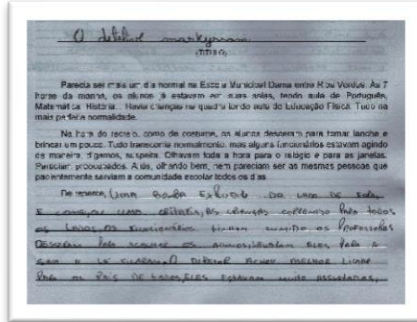 O detetive markynian
(TÍTULO)
Parecia ser mais um dia normal na Escola Municipal Dama entre Rios Verdes. Às 7
horas da manhã, os alunos já estavam em suas salas, tendo aula de Português,
Matemática, História... Havia crianças na quadra tendo aula de Educação Física. Tudo na
mais perfeita normalidade.
Na hora do recreio, como de costume, os alunos desceram para tomar lanche e
brincar um pouco. Tudo transcorria normalmente, mas alguns funcionários estavam agindo
de maneira, digamos, suspeita. Olhavam toda a hora para o relógio e para as janelas.
Pareciam preocupados. Aliás, olhando bem, nem pareciam ser as mesmas pessoas que
pacientemente serviam a comunidade escolar todos os dias.
De repente, UMA BOMBA EXPLODIU DO LADO DE FORA,
E COMEÇOU UMA GRITARIA, AS CRIANÇAS CORRENDO PARA TODOS
OS LADOS, OS FUNCIONÁRIOS HAVIAM SUMIDO OS PROFESSORES
DESCERAM PARA SOCORRER OS ALUNOS, LEVARAM ELES PARA A
SALA E LÁ FICARAM, O DIRETOR ACHOU MELHOR LIGAR
PARA OS PAIS DE TODOS, ELES ESTAVAM MUITO ASSUSTADOS,